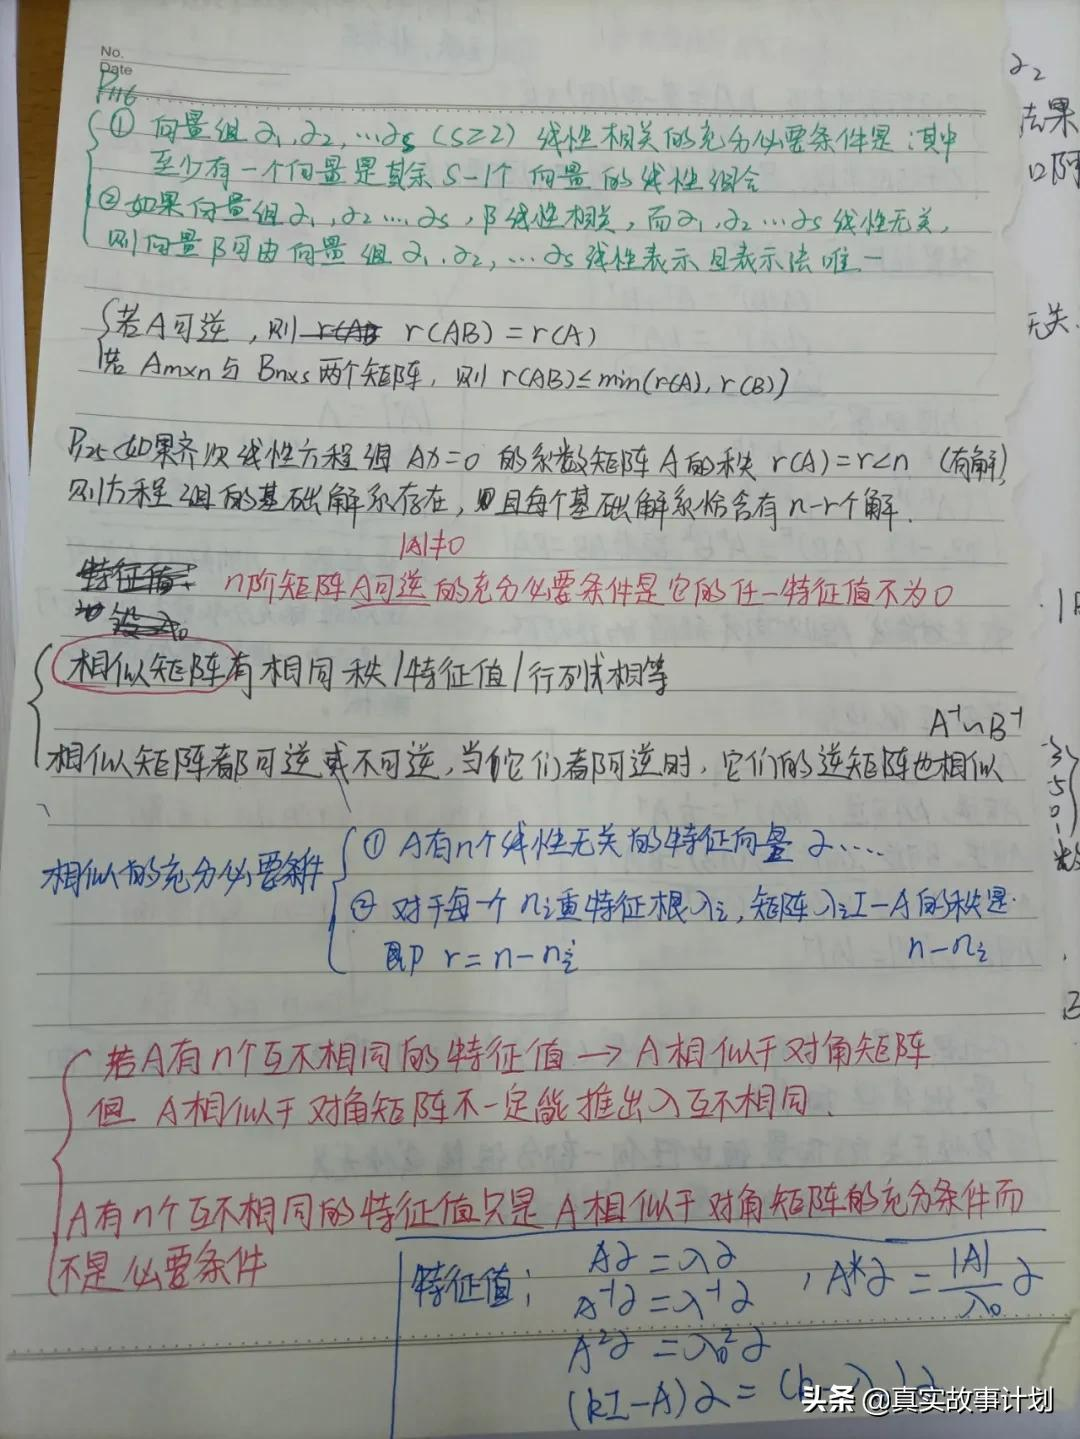 No.
Date
P116
① 向量组α1,α2,…αs(s≥2)线性相关的充分必要条件是:其中
至少有一个向量是其余s-1个向量的线性组合
②如果向量组α1,α2…αs,β线性相关,而α1,α2…αs线性无关,
则向量β可由向量组α1,α2,…αs线性表示且表示法唯一
若A可逆,则 r(AB r(AB)=r(A)
若 Am×n与 Bn×s两个矩阵,则 r(AB)≤min(r(A),r(B))
P125 如果齐次线性方程组 Ax=0 的系数矩阵A的秩 r(A)=r<n (有解)
则方程组的基础解系存在,且每个基础解系恰含有n-r个解.
|A|≠0
特征值:n阶矩阵A可逆的充分必要条件是它的任一特征值不为0
设λ0
相似矩阵有相同秩/特征值/行列式相等
A⁻¹∽B⁻¹
相似矩阵都可逆或不可逆,当它们都可逆时,它们的逆矩阵也相似
① A有n个线性无关的特征向量α....
相似的充分必要条件
② 对于每一个ni重特征根λi,矩阵λiI-A的秩是
即 r=n-ni n-ni
若A有n个互不相同的特征值→A相似于对角矩阵
但 A相似于对角矩阵不一定能推出λ互不相同.
A有n个互不相同的特征值只是A相似于对角矩阵的充分条件而
不是必要条件
特征值: Aα=λα , A*α=|A|/λ0 α
A⁻¹α=λ⁻¹α
A²α=λ0²α
(kI-A)α=(k-λ)α
α2
法果
无关.
头条@真实故事计划